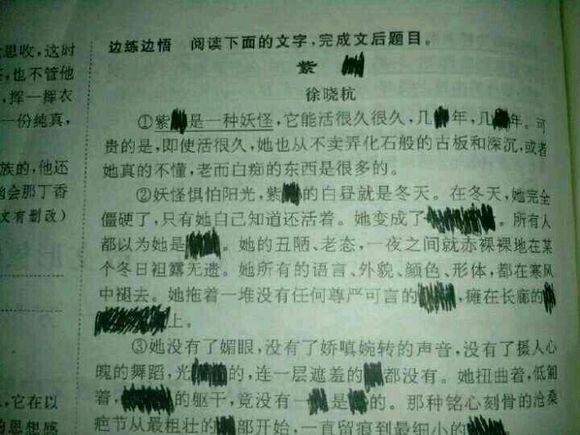 思收,这时
,也不管他
,挥一挥衣
一份纯真,
族的,他还
会那丁香
文有删改)
,它在以
的思想感
边练边悟 阅读下面的文字,完成文后题目。
紫
徐晓杭
①紫是一种妖怪,它能活很久很久,几年,几年。可
贵的是,即使活很久,她也从不卖弄化石般的古板和深沉,或者
她真的不懂,老而白痴的东西是很多的。
②妖怪惧怕阳光,紫的白昼就是冬天。在冬天,她完全
僵硬了,只有她自己知道还活着。她变成了。所有人
都以为她是。她的丑陋、老态,一夜之间就赤裸裸地在某
个冬日袒露无遗。她所有的语言、外貌、颜色、形体,都在寒风
中褪去。她拖着一堆没有任何尊严可言的,瘫在长廊的
上。
③她没有了媚眼,没有了娇嗔婉转的声音,没有了摄人心
魄的舞蹈,光的,连一层遮羞的都没有。她扭曲着,低匍
着,的躯干,竟没有一是的。那种铭心刻骨的沧桑
疤节从最粗壮的部开始,一直留痕到最细小的